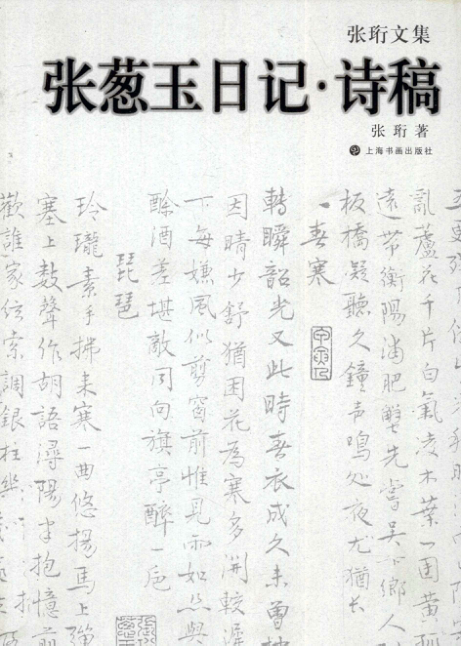 张珩文集
张葱玉日记·诗稿
张珩 著
上海书画出版社
亂蘆花千片白氣凌木葉一園黃
遠带衡陽浦肥蟹先嘗吴下鄉人
板橋凝聽久鐘声鳴处夜尤猶長
春寒
轉瞬韶光又此時春衣成久未曾
因晴少舒猶困花為寒多開較遲
下每嫌風似剪窗前惟見雨如
酴酒差堪敵同向旗亭醉一卮
琵琶
玲瓏素手拂来寒一曲悠揚馬上
塞上数聲作胡語潯陽半抱憶前
歡誰家弦索調銀柱